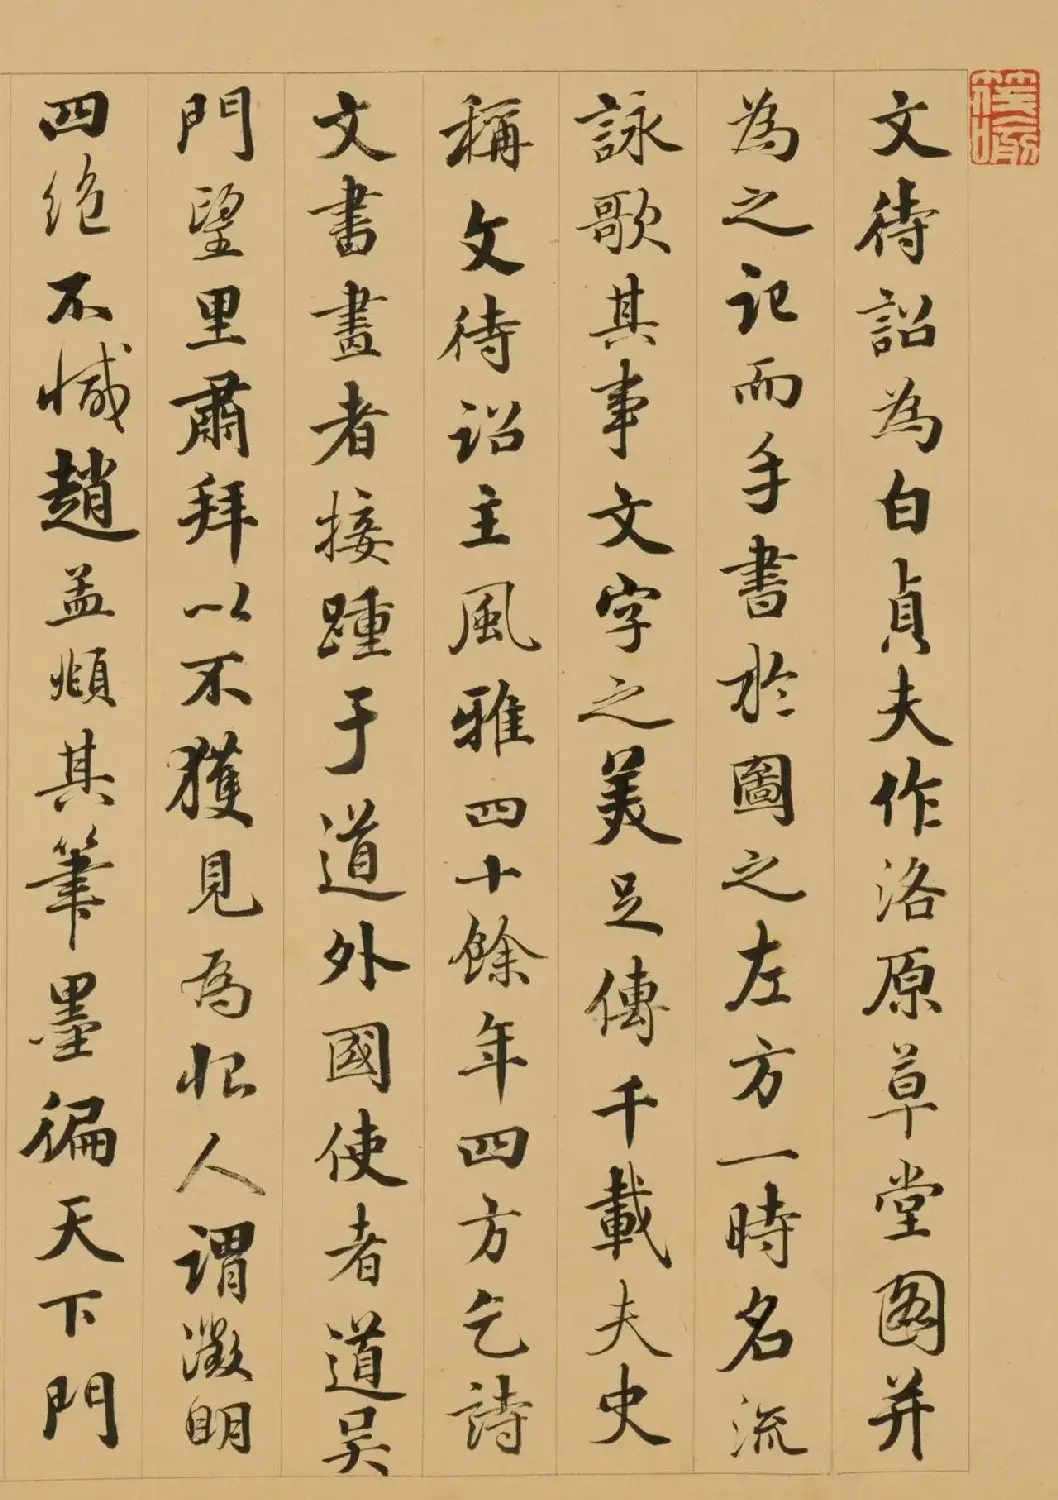 文待詔為白貞夫作洛原草堂圖并
為之記而手書於圖之左方一時名流
詠歌其事文字之美足傳千載夫史
稱文待詔主風雅四十餘年四方乞詩
文書畫者接踵于道外國使者道吳
門望里肅拜以不獲見為恨人謂徵明
四絕不減趙孟頫其筆墨徧天下門